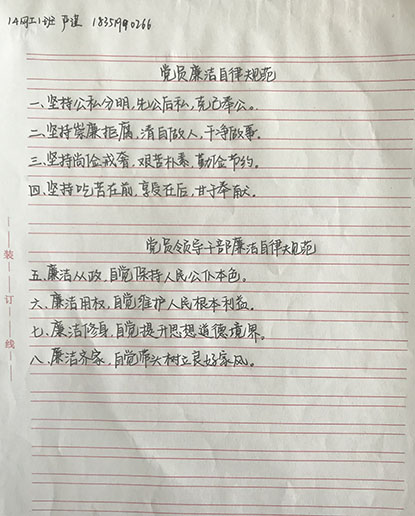 14网工1班 严谨 18351990266
党员廉洁自律规范
一、坚持公私分明，先公后私，克己奉公。
二、坚持崇廉拒腐，清白做人，干净做事。
三、坚持尚俭戒奢，艰苦朴素，勤俭节约。
四、坚持吃苦在前，享受在后，甘于奉献。
党员领导干部廉洁自律规范
五、廉洁从政，自觉保持人民公仆本色。
六、廉洁用权，自觉维护人民根本利益。
七、廉洁修身，自觉提升思想道德境界。
八、廉洁齐家，自觉带头树立良好家风。
装
订
线